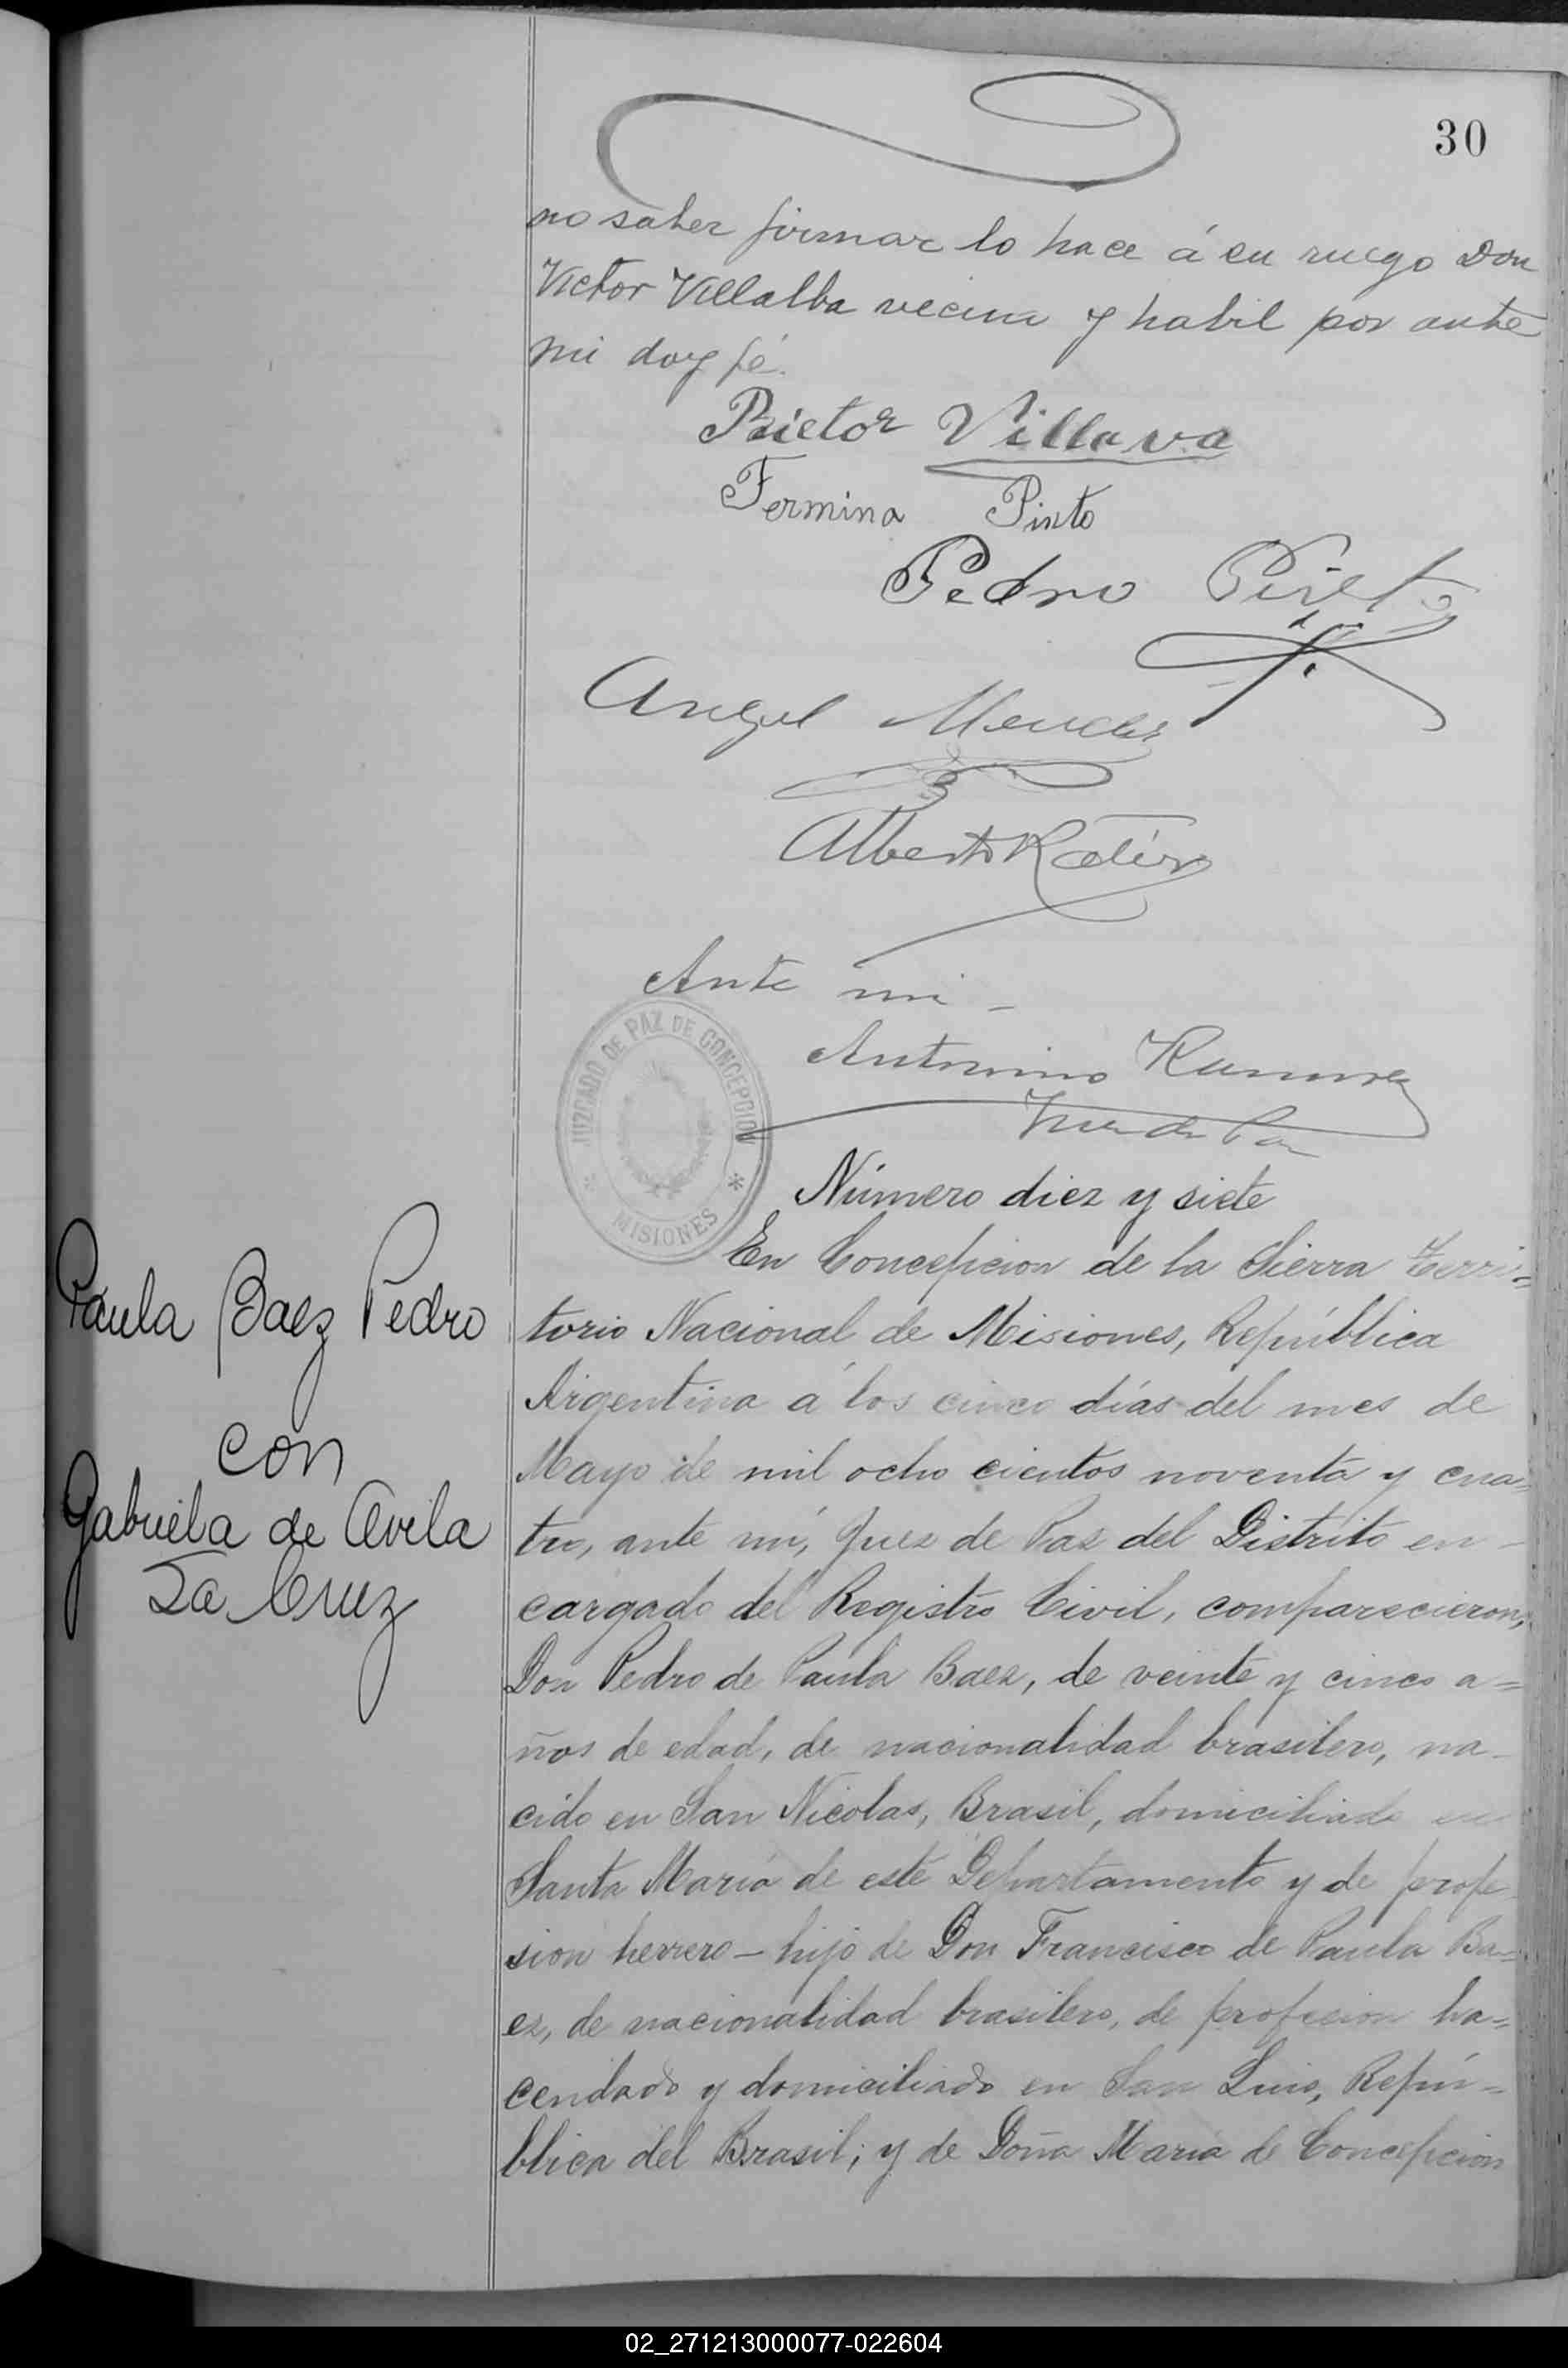 30
no saber firmar lo hace á su ruego Don
Victor Villalba vecino y habil por ante
mi doy fé.
Bictor Villava
Fermina Pinto
Pedro
Angel Mendes
Alberto
Ante mi -
Antonino Ramirez
Juez de Paz
JUZGADO DE PAZ DE CONCEPCION
* MISIONES *
Número diez y siete
Paula Baez Pedro
con
Gabriela de Avila
La Cruz
En Concepcion de la Sierra Terri=
torio Nacional de Misiones, República
Argentina á los cinco días del mes de
Mayo de mil ocho cientos noventa y cua=
tro, ante mí, Juez de Paz del Distrito en-
cargado del Registro Civil, comparecieron,
Don Pedro de Paula Baez, de veinte y cinco a=
ños de edad, de nacionalidad brasilero, na-
cido en San Nicolas, Brasil, domiciliado en
Santa María de este Departamento y de profe
sion herrero - hijo de Don Francisco de Paula Ba=
ez, de nacionalidad brasilero, de profecion ha=
cendado y domiciliado en San Luis, Repú=
blica del Brasil; y de Doña María de Concepcion
02_271213000077-022604